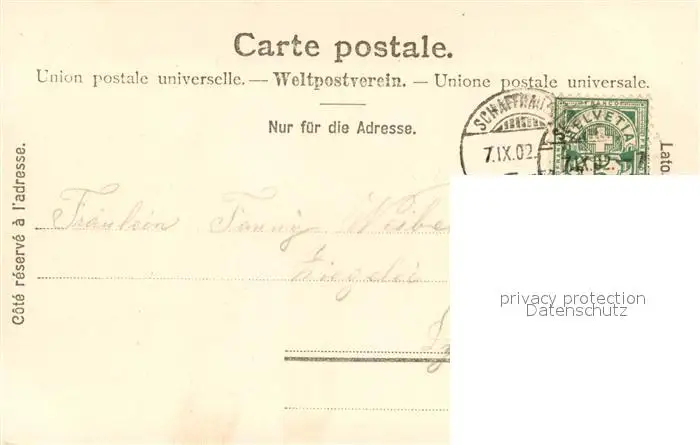 Carte postale.
Union postale universelle. — Weltpostverein. — Unione postale universale.
Nur für die Adresse.
SCHAFFHAU
7.IX.02.
HELVETIA
FRANCO
7.IX.02.
Côté réservé à l'adresse.
Lato
Fräulein Fanny Weibe
Ziegelei
privacy protection
Datenschutz